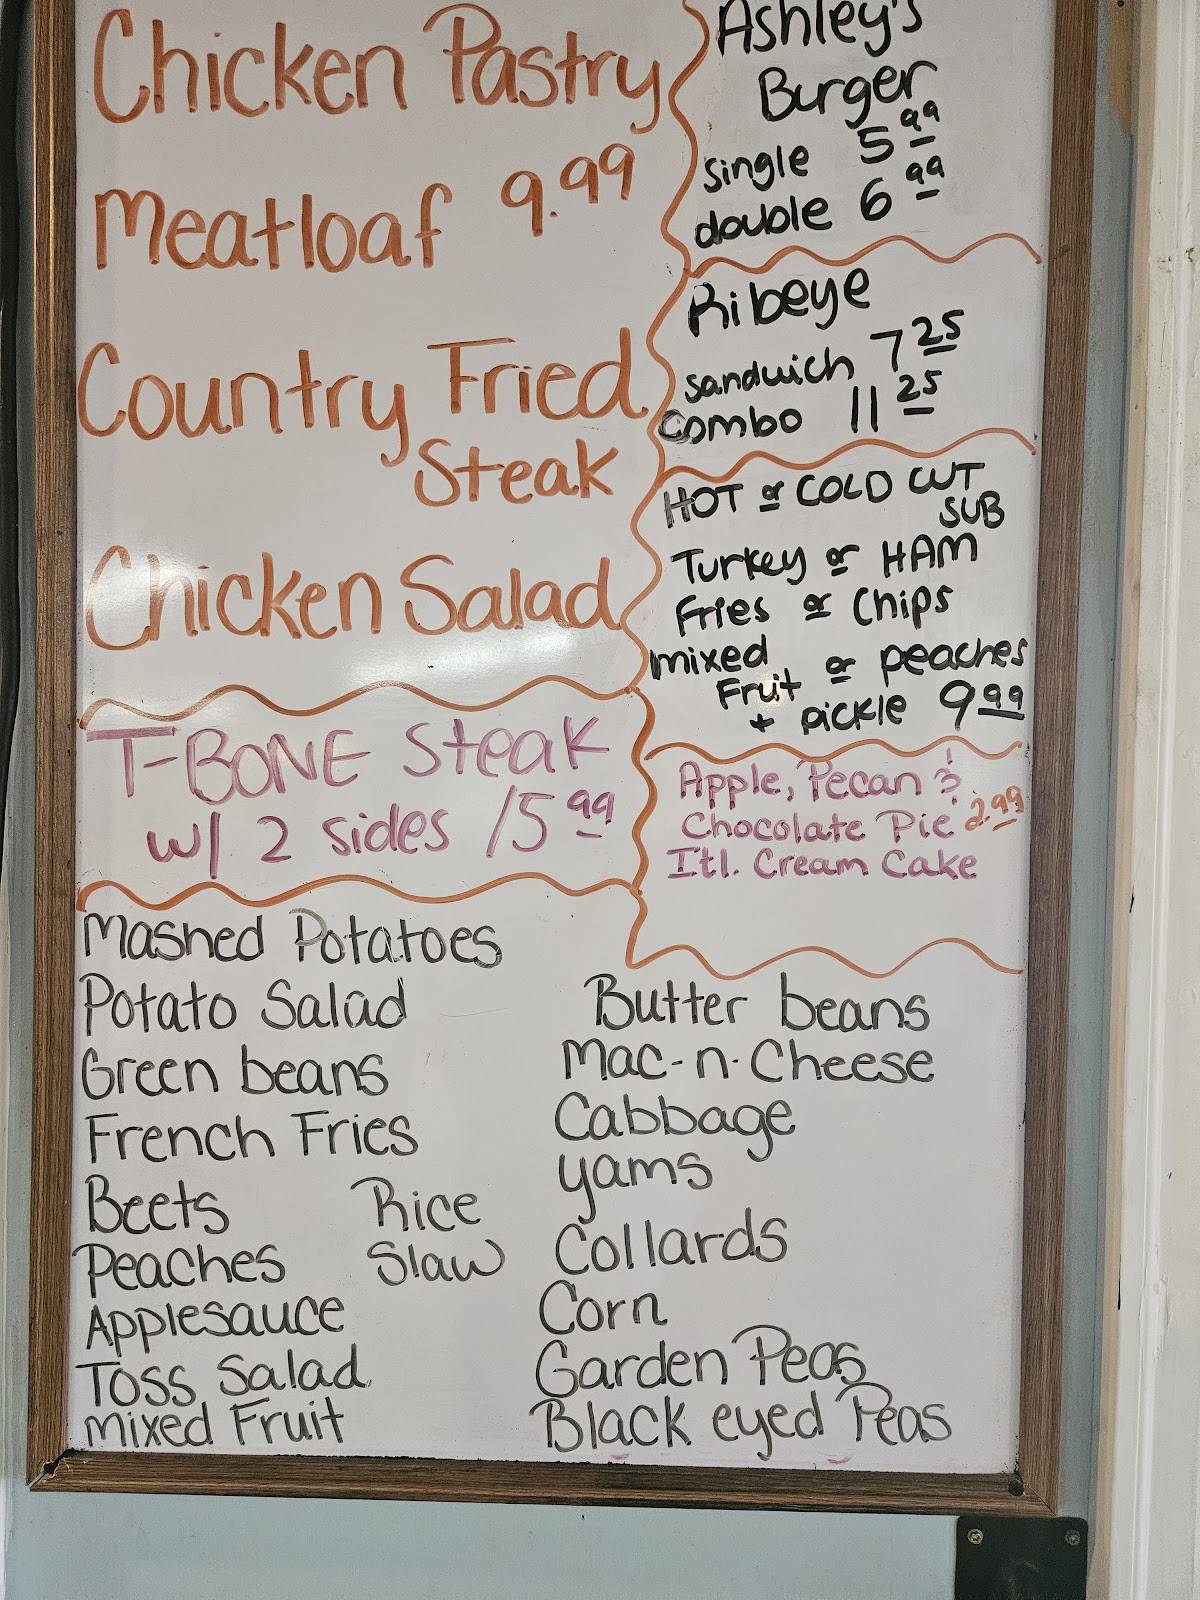 Chicken Pastry
Meatloaf 9.99
Country Fried
Steak
Chicken Salad
T-BONE Steak
w/ 2 sides 15 99
Ashley's
Burger
single 5 99
double 6 99
Ribeye
sandwich 7 25
Combo 11 25
HOT or COLD CUT
SUB
Turkey or HAM
Fries or Chips
mixed
Fruit or peaches
+ pickle 9 99
Apple, Pecan &
Chocolate Pie 2.99
Itl. Cream Cake
Mashed Potatoes
Potato Salad
Green beans
French Fries
Beets Rice
Peaches Slaw
Applesauce
Toss Salad
Mixed Fruit
Butter beans
Mac-n-Cheese
Cabbage
yams
Collards
Corn
Garden Peas
Black eyed Peas